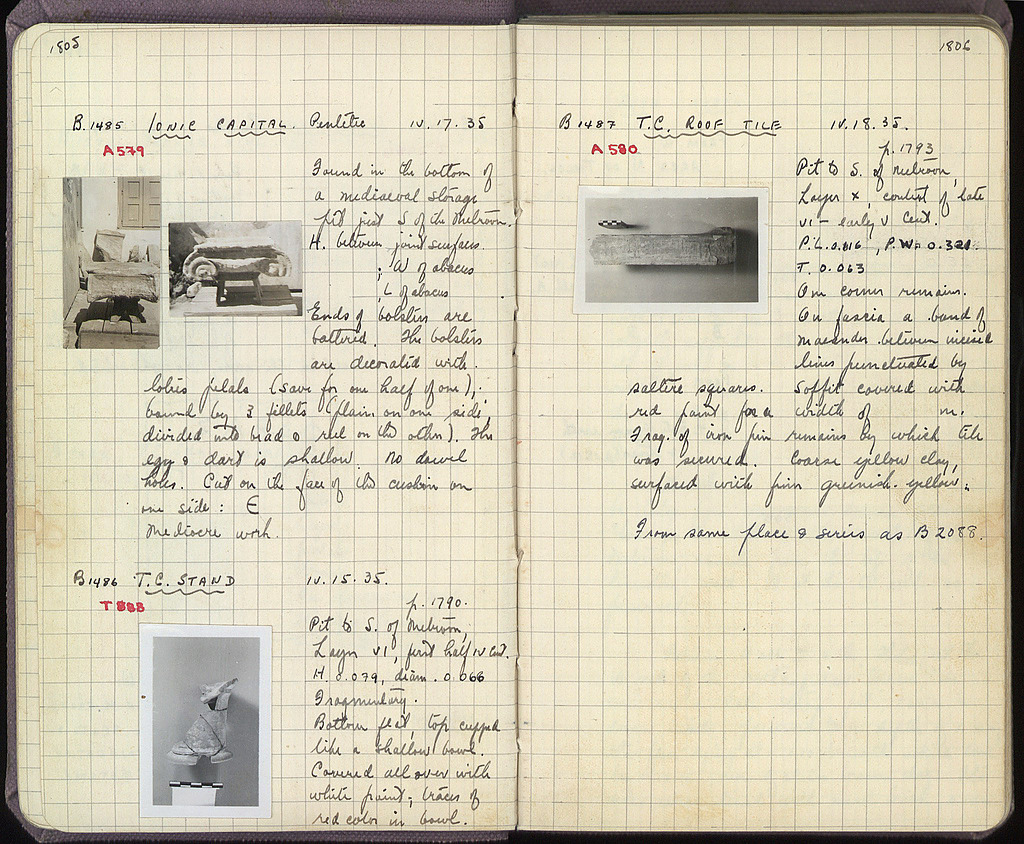 1805
B.1485 IONIC CAPITAL. Pentelic IV.17.35
A 579
Found in the bottom of
a mediaeval storage
pit just S of the Metroon.
H. between joint surfaces
; W of abacus
; L of abacus
Ends of bolsters are
battered. The bolsters
are decorated with
lotus petals (save for one half of one);
bound by 3 fillets (plain on one side,
divided into bead & reel on the other). The
egg & dart is shallow. No dowel
holes. Cut on the face of the cushion on
one side: E
Mediocre work.
B 1486 T.C. STAND IV.15.35.
T 888
p. 1790.
Pit to S. of Metroon,
Layer VI, first half IV Cent.
H 0.079, diam. 0.066
Fragmentary.
Bottom flat, top cupped
like a shallow bowl.
Covered all over with
white paint; traces of
red color in bowl.
1806
B 1487 T.C. ROOF TILE IV.18.35.
A 580
p. 1793
Pit to S. of Metroon,
Layer X, context of late
VI - early V Cent.
P.L. 0.616, P.W. 0.321.
T. 0.063
One corner remains.
On fascia a band of
maeander between incised
lines punctuated by
saltire squares. Soffit covered with
red paint for a width of m.
Frag. of iron pin remains by which tile
was secured. Coarse yellow clay,
surfaced with finer greenish-yellow.
From same place & series as B 2088.